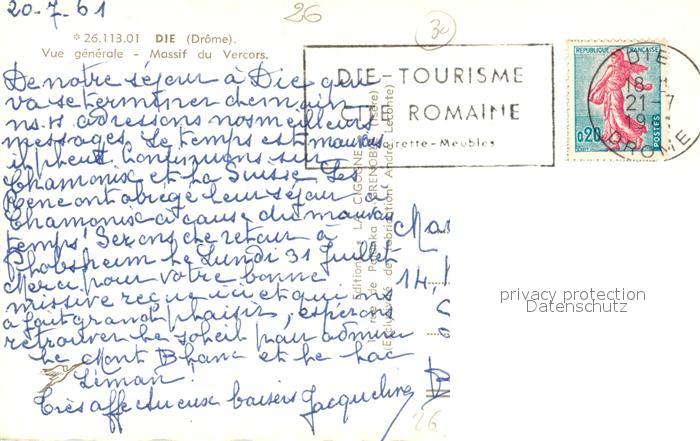 20-7-61
26
30
* 26.113.01 DIE (Drôme).
Vue générale - Massif du Vercors.
De notre séjour à Die qui
va se terminer demain
ns. vs adressons nos meilleurs
messages. Le temps est mauvais
il pleut. Continuons sur
Chamonix et la Suisse. Les
ont abrégé leur séjour à
Chamonix à cause du mauvais
temps! Serons de retour à
le Lundi 31 Juillet
Merci pour votre bonne
missive reçue ici et qui m'a
a fait grand plaisir, espérons
retrouver le soleil pour admirer
le Mont Blanc et le lac
Léman!
Très affectueux baisers Jacqueline
DIE - TOURISME
CITE ROMAINE
Meubles
REPUBLIQUE FRANÇAISE
0,20
POSTES
DIE
18 H
21-7
19
DROME
Editions LA CIGOGNE
GRENOBLE (Isère)
(Exclusivité de fabrication André Leconte)
14,
26
privacy protection
Datenschutz